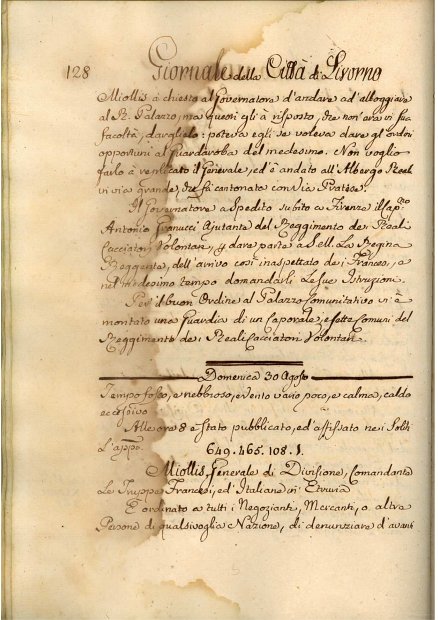 128 Giornale della Città di Livorno
Miollis à chiesto al Governatore d'andare ad'alloggiare
al R. Palazzo, ma questi gli à risposto, che non avea in sua
facoltà, darglielo: poteva egli se voleva dare gl'ordini
opportuni al Guardaroba del medesimo. Non voglio
farlo à replicato il Generale, ed'è andato all'Albergo Reale
in via grande, che fà cantonata con Via Pratese.
Il Governatore à spedito subito a Firenze il Cap.no
Antonio Granucci Ajutante del Reggimento de Reali
Cacciatori Volontari, p. dare parte a S. M. La Regina
Reggente, dell'arrivo così inaspettato de i Francesi, e
nel medesimo tempo domandarli Le sue Istruzioni.
Per il buon Ordine al Palazzo Comunitativo vi è
montato una Guardia di un Caporale, e sette Comuni del
Reggimento de i Reali Cacciatori Volontari.
Domenica 30 Agosto
Tempo fosco, e nebbioso, e vento vario poco, e calma, caldo
eccessivo
Alle ore 8 è stato pubblicato, ed'affissato ne i Soliti
L'appo.
640.465.108.1.
Miollis, Generale di Divisione, Comandante
Le Truppe Francesi, ed'Italiane in Etruria
È ordinato a tutti i Negozianti, Mercanti, o altre
Persone di qualsivoglia Nazione, di denunziare d'avanti